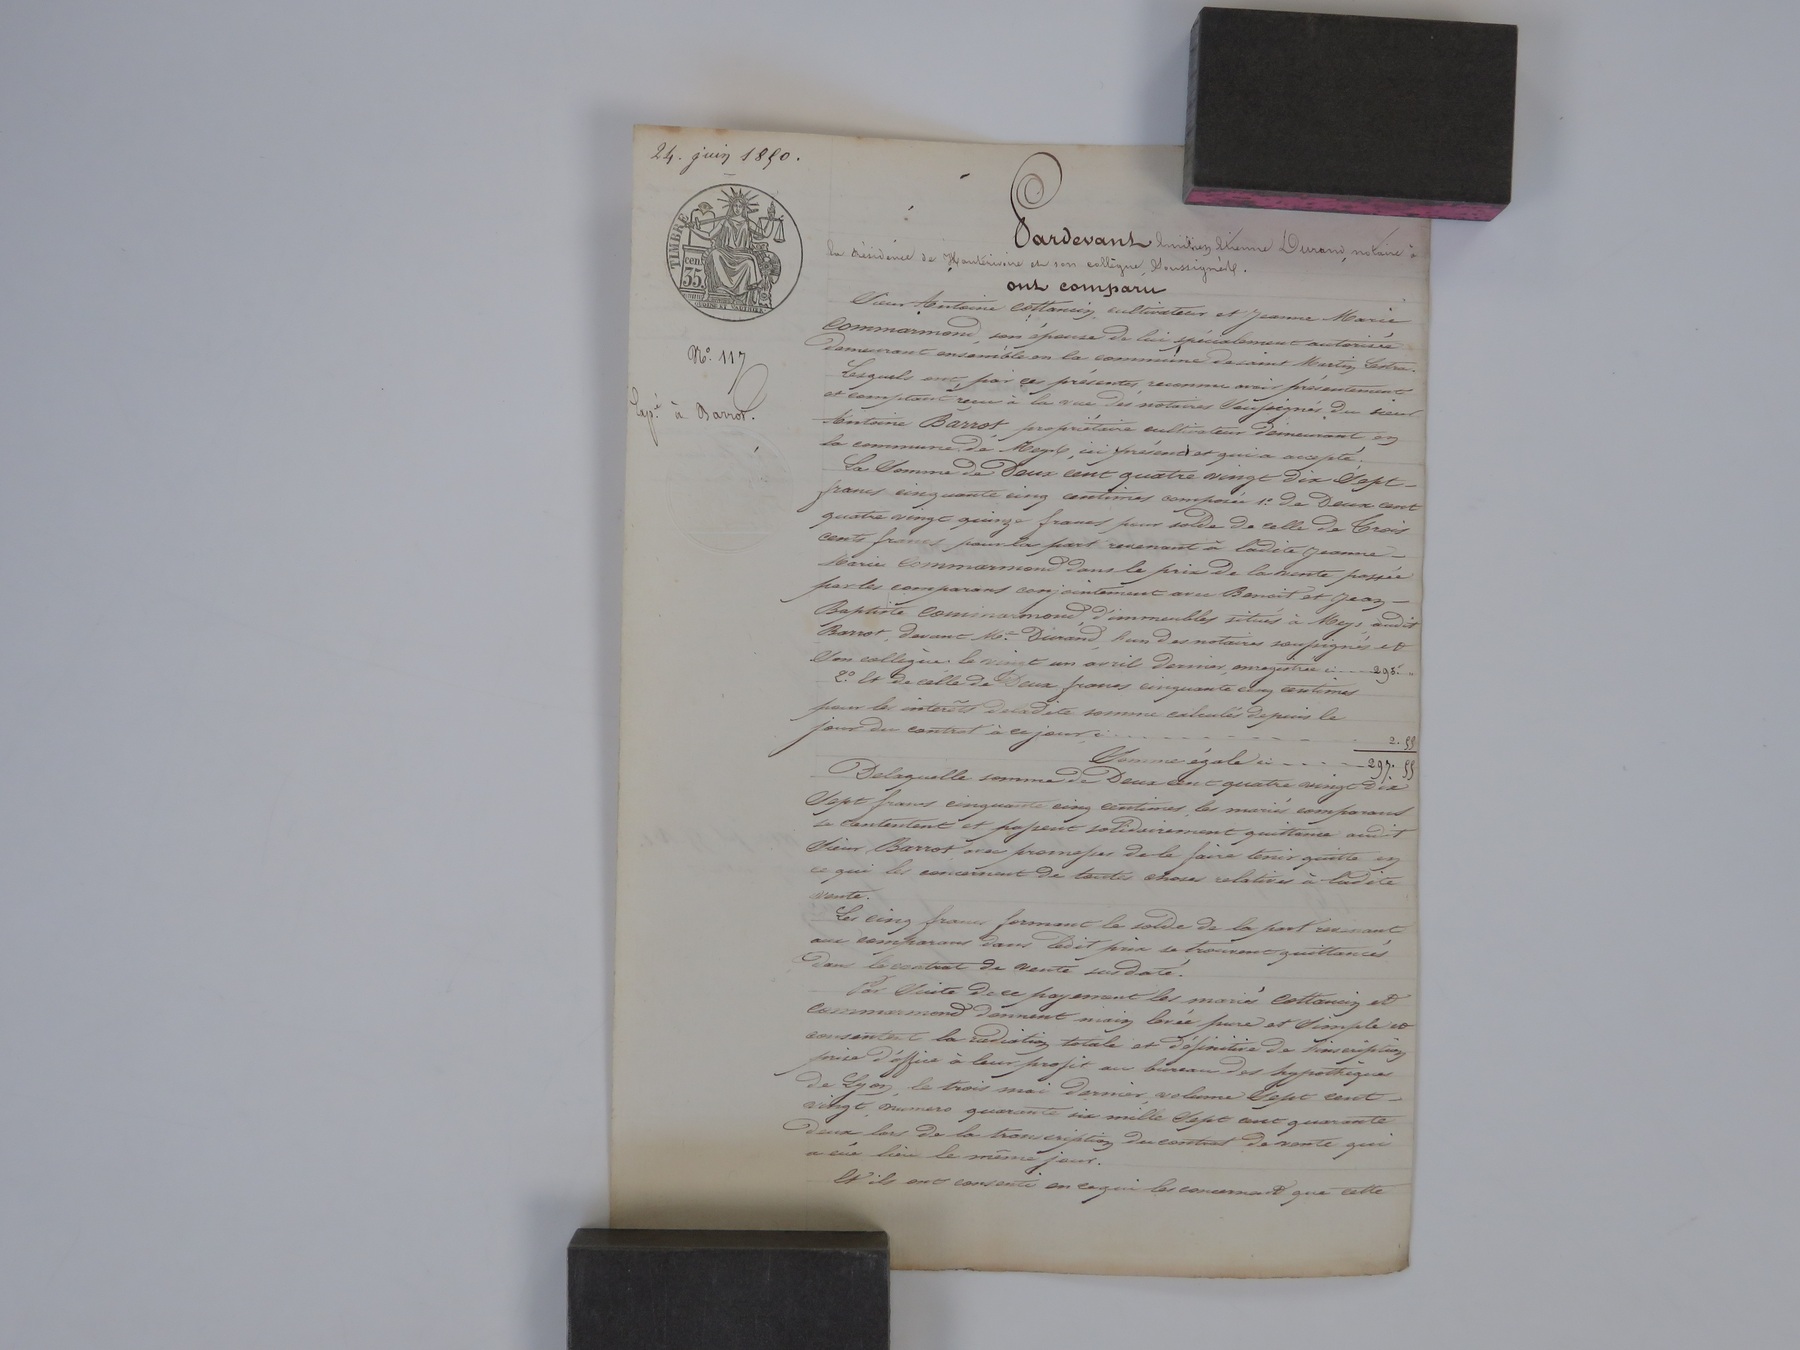 24. juin 1850.
TIMBRE
cent
35.
N.° 117
Exp.é à Barrot.
Pardevant Etienne Durand, notaire à
la résidence de Hauterivoire et son collègue, soussignés.
ont comparu
Sieur Antoine Cottancin, cultivateur et Jeanne Marie
Commarmond, son épouse de lui spécialement autorisée
demeurant ensemble en la commune de saint Martin Lestra.
Lesquels ont, par ces présentes, reconnu avoir présentement
et comptant reçu à la vue des notaires soussignés du sieur
Antoine Barrot propriétaire cultivateur demeurant en
la commune de Meys, ici présent et qui a accepté.
La Somme de Deux cent quatre vingt dix Sept
francs cinquante cinq centimes composée 1.° de Deux cent
quatre vingt quinze francs pour solde de celle de Trois
cents francs pour la part revenant à ladite Jeanne
Marie Commarmond dans le prix de la vente passée
par les comparans conjointement avec Benoit et Jean
Baptiste Commarmond, d'immeubles situés à Meys, audit
Barrot, devant M.e Durand, l'un des notaires soussignés et
Son collègue le vingt un avril dernier, enregistrée ci 295. "
2.° Et de celle de Deux francs cinquante cinq centimes
pour les intérêts de ladite somme calculés depuis le
jour du contrat à ce jour, ci 2. 55
Somme égale ci 297. 55
De laquelle somme de Deux cent quatre vingt dix
Sept francs cinquante cinq centimes, les mariés comparans
se contentent et passent solidairement quittance audit
Sieur Barrot avec promesses de le faire tenir quitte en
ce qui les concernent de toutes choses relatives à ladite
vente.
Les cinq francs formant le solde de la part revenant
aux comparans dans ledit prix se trouvent quittancés
dans le contrat de vente sus daté.
Par Suite de ce payement les mariés Cottancin et
Commarmond donnent main levée pure et simple et
consentent la radiation totale et définitive de l'inscription
prise d'office à leur profit au bureau des hypothèques
de Lyon, le trois mai dernier, volume Sept cent
vingt, numero quarante six mille Sept cent quarante
deux lors de la transcription du contrat de vente qui
a eue lieu le même jour.
Et ils ont consenti en ce qui les concernent que cette